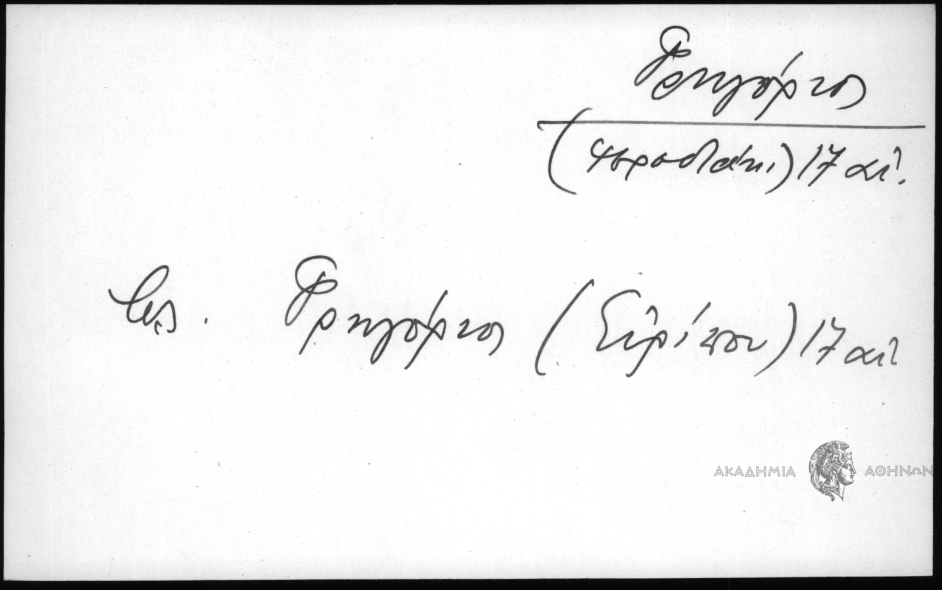 Γρηγόριος
17 αἰ.
βλ. Γρηγόριος (Εὐρίπου) 17 αἰ
ΑΚΑΔΗΜΙΑ ΑΘΗΝΩΝ